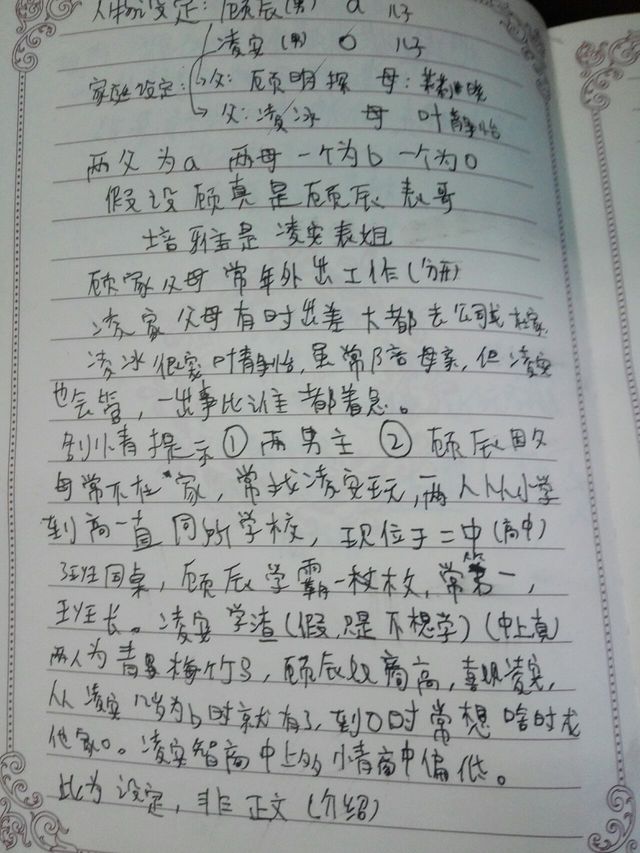 人物设定：顾辰(男) a 儿子
凌安(男) O 儿子
家庭设定：→父：顾明探 母：
→父：凌冰 母 叶静怡
两父为a 两母一个为b 一个为O
假设顾真是顾辰表哥
培雅是凌安表姐
顾家父母常年外出工作(分开)
凌家父母有时出差大都去公司或在家，
凌冰很宠叶静怡，虽常陪母亲，但凌安
也会管，一出事比谁都着急。
剧情提示①两男主 ②顾辰因父
母常不在家，常找凌安玩，两人从小学
到高一直同所学校，现位于二中(高中)
班同桌，顾辰学霸一枚，常第一，
班长。凌安学渣(假，只是不想学)(中上真)
两人为青梅竹马，顾辰双商高，喜欢凌安，
从凌安几岁为b时就有了，到O时常想啥时成
他家O。凌安智商中上的情商中偏低。
此为设定，非正文(介绍)